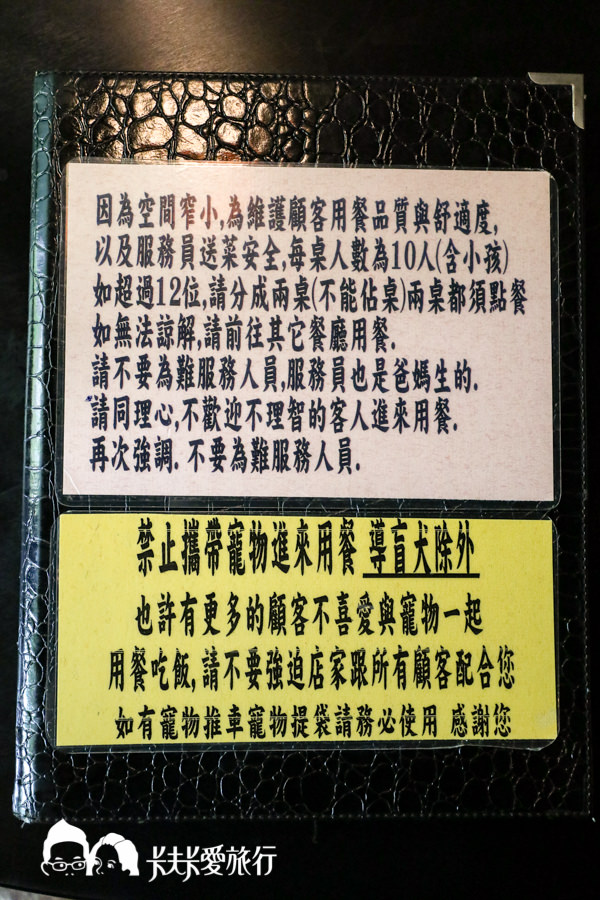 因為空間窄小,為維護顧客用餐品質與舒適度,
以及服務員送菜安全,每桌人數為10人(含小孩)
如超過12位,請分成兩桌(不能佔桌)兩桌都須點餐
如無法諒解,請前往其它餐廳用餐.
請不要為難服務人員,服務員也是爸媽生的.
請同理心,不歡迎不理智的客人進來用餐.
再次強調. 不要為難服務人員.
禁止攜帶寵物進來用餐 導盲犬除外
也許有更多的顧客不喜愛與寵物一起
用餐吃飯,請不要強迫店家跟所有顧客配合您
如有寵物推車寵物提袋請務必使用 感謝您
卡夫卡愛旅行